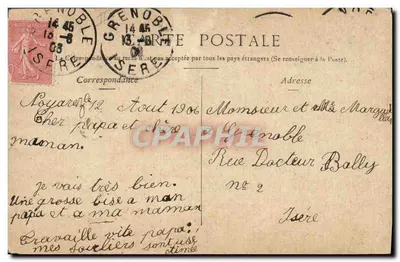 GRENOBLE
ISERE
14 45
13-8
GRENOBLE
ISERE
CARTE POSTALE
pas acceptée par tous les pays étrangers (Se renseigner à la Poste).
Correspondance
Adresse
Noyarey 12 Aout 1906
Cher Papa et Mère
maman.
Je vais très bien.
Une grosse bise a mon
papa et a ma maman
Travaille vite papa!
mes souliers sont use
Monsieur et Me
Grenoble
Rue Docteur Bally
n° 2
Isère
CPAPHIL